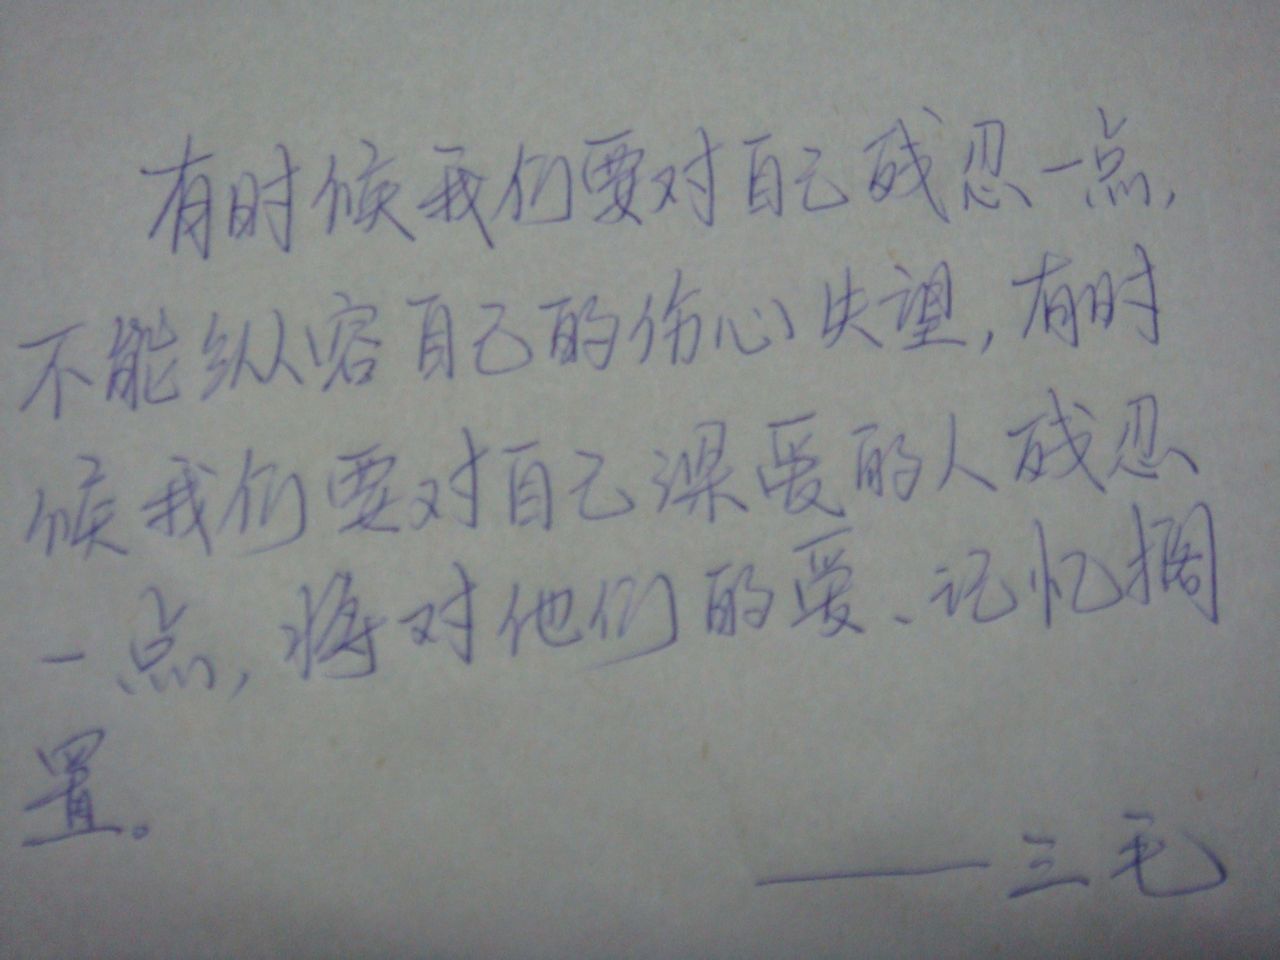 有时候我们要对自己残忍一点,
不能纵容自己的伤心失望,有时
候我们要对自己深爱的人残忍
一点,将对他们的爱、记忆搁
置。
——三毛